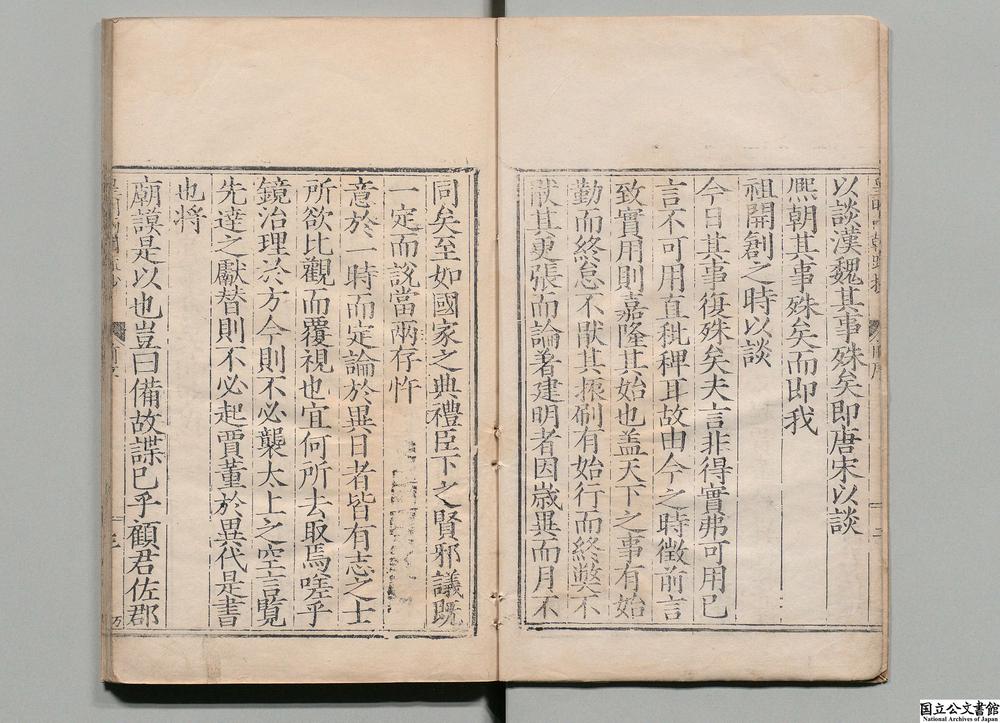 以談漢魏其事殊矣即唐宋以談
熈朝其事殊矣而即我
祖開創之時以談
今日其事復殊矣夫言非得實弗可用已
言不可用直秕稗耳故由今之時徵前言
致實用則嘉隆其始也盖天下之事有始
勤而終怠不厭其振刷有始行而終獘不
厭其更張而論著建明者因歳異而月不
同矣至如國家之典禮臣下之賢邪議既
一定而說當兩存忤
意於一時而定論於異日者皆有志之士
所欲比觀而覆視也宜何所去取焉嗟乎
鏡治理於方今則不必襲太上之空言覽
先逹之獻替則不必起賈董於異代是書
也将
廟謨是以也豈曰備故諜已乎顧君佐郡
国立公文書館
National Archives of Japan